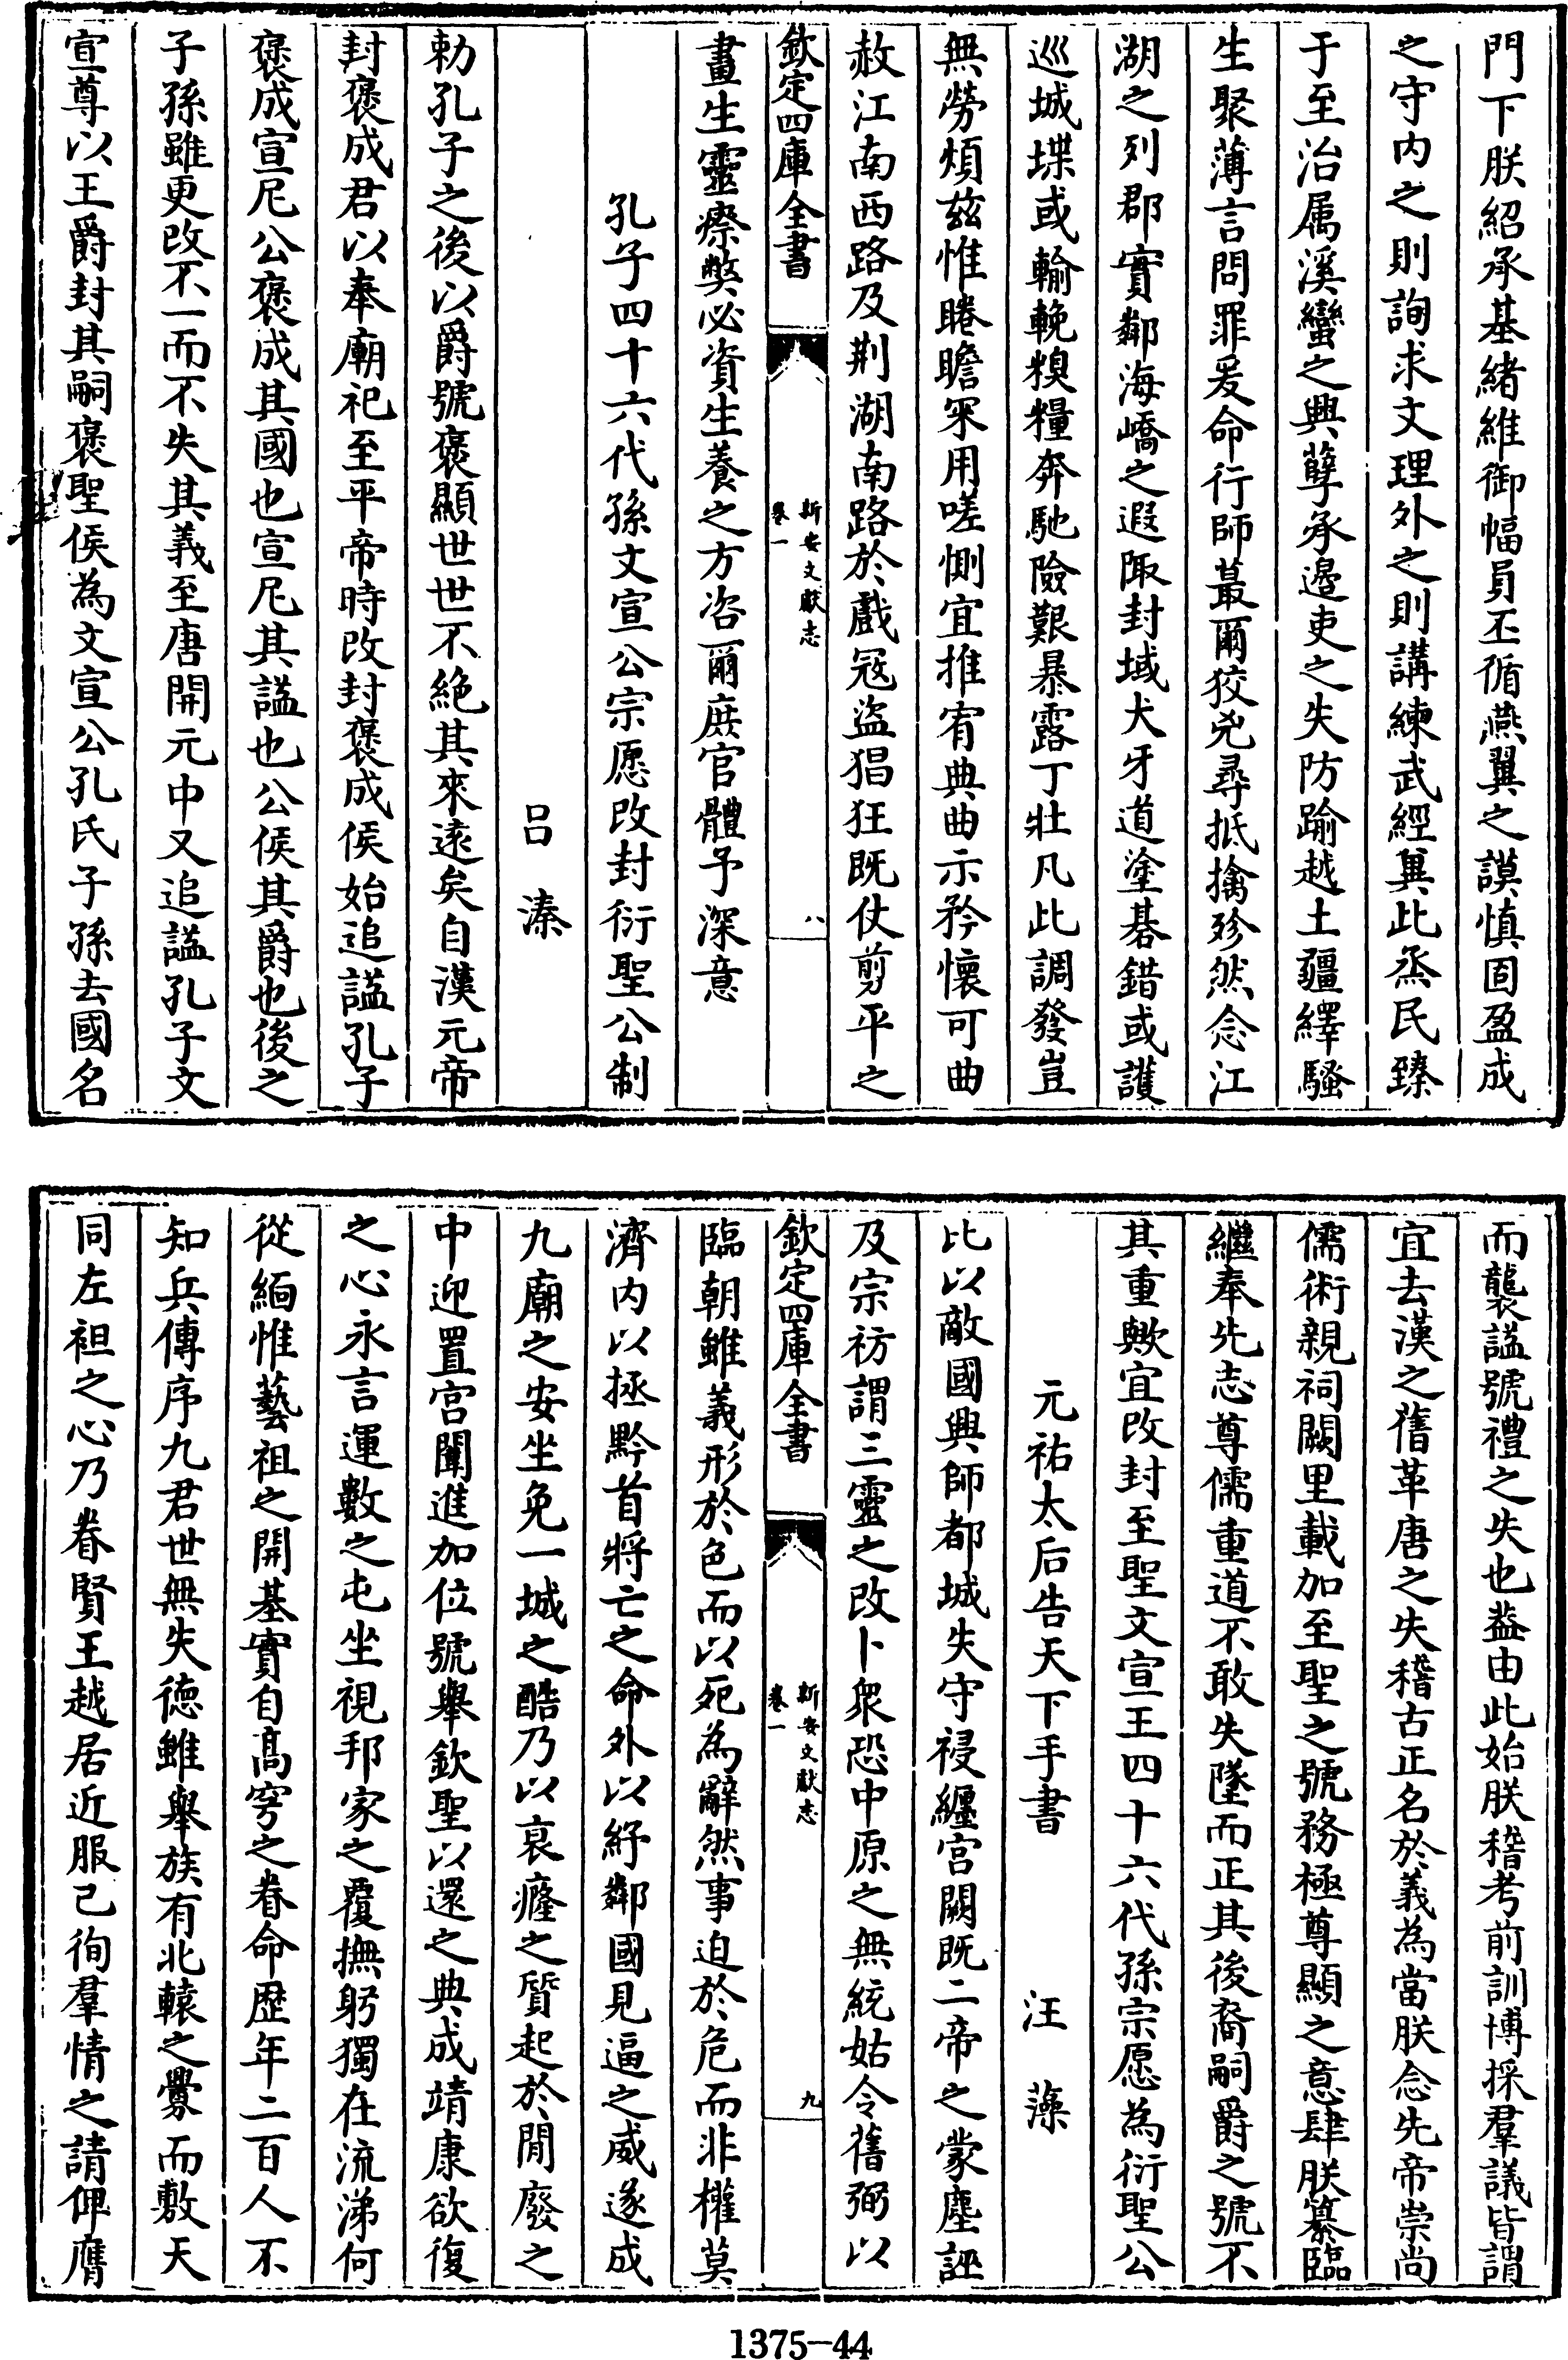 門下朕紹承基緒維御幅員丕循燕翼之謨慎固盈成
之守内之則詢求文理外之則講練武經兾此烝民臻
于至治属溪蠻之興孽承邉吏之失防踰越土疆繹騷
生聚薄言問罪爰命行師蕞爾狡兇尋抵擒殄然念江
湖之列郡實鄰海嶠之遐陬封域犬牙道塗碁錯或護
巡城堞或輸輓糗糧奔馳險艱暴露丁壯凡此調發豈
無勞煩兹惟睠瞻罙用嗟惻宜推宥典曲示矜懷可曲
赦江南西路及荆湖南路於戲冦盜猖狂既伏剪平之
欽定四庫全書
新安文獻志
卷一
八
畫生靈瘵獘必資生養之方咨爾庶官體予深意
孔子四十六代孫文宣公宗愿改封衍聖公制
吕溱
勅孔子之後以爵號褒顯世世不絶其來逺矣自漢元帝
封褒成君以奉廟祀至平帝時改封褒成侯始追諡孔子
褒成宣尼公褒成其國也宣尼其諡也公侯其爵也後之
子孫雖更改不一而不失其義至唐開元中又追諡孔子文
宣尊以王爵封其嗣褒聖侯為文宣公孔氏子孫去國名
而襲諡號禮之失也葢由此始朕稽考前訓博採羣議皆謂
宜去漢之舊革唐之失稽古正名於義為當朕念先帝崇尚
儒術親祠闕里載加至聖之號務極尊顯之意肆朕纂臨
繼奉先志尊儒重道不敢失墜而正其後裔嗣爵之號不
其重歟宜改封至聖文宣王四十六代孫宗愿為衍聖公
元祐太后告天下手書
汪藻
比以敵國興師都城失守祲纒宫闕既二帝之蒙塵誣
及宗祊謂三靈之改卜衆恐中原之無統姑令舊弼以
欽定四庫全書
新安文獻志
卷一
九
臨朝雖義形於色而以死為辭然事迫於危而非權莫
濟内以拯黔首將亡之命外以紓鄰國見逼之威遂成
九廟之安坐免一城之酷乃以哀癃之質起於閒廢之
中迎置宫闈進加位號舉欽聖以還之典成靖康欲復
之心永言運數之屯坐視邦家之覆撫躬獨在流涕何
從緬惟藝祖之開基實自髙穹之眷命歴年二百人不
知兵傳序九君世無失徳雖舉族有北轅之釁而敷天
同左袒之心乃眷賢王越居近服已徇羣情之請俾膺
1375-44